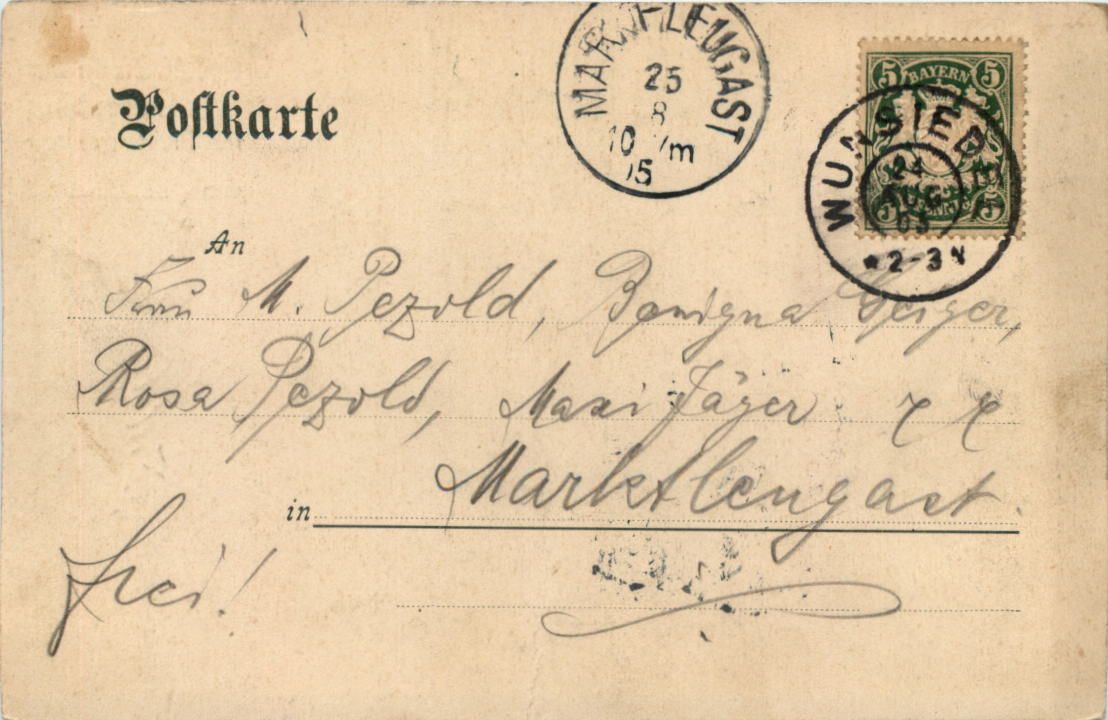 Postkarte
MARKTLEUGAST
25
8
10 Vm
05
5 BAYERN 5
5 PFENNIG 5
WUNSIEDEL
24
AUG
05
* 2-3 N
An
Frau M. Pezold, Benigna Geiger,
Rosa Pezold, Maxi Jäger
in Marktleugast.
frei!